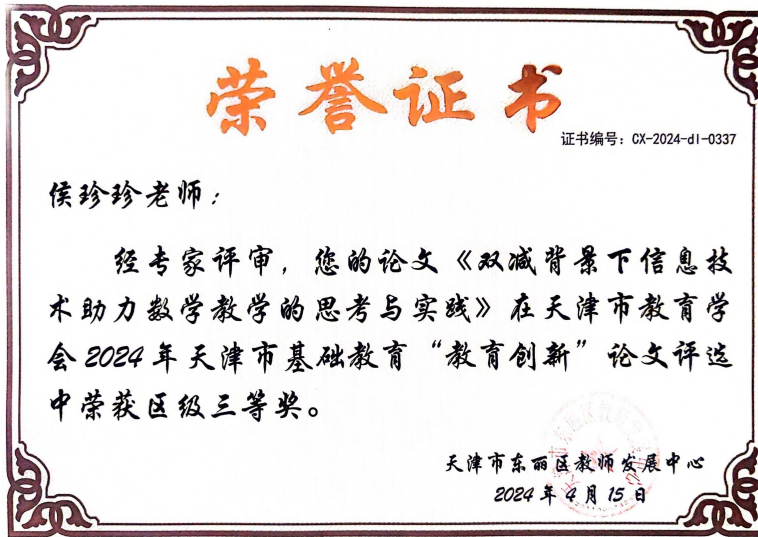 荣誉证书
证书编号：CX-2024-dl-0337
侯珍珍老师：
经专家评审，您的论文《双减背景下信息技
术助力数学教学的思考与实践》在天津市教育学
会2024年天津市基础教育“教育创新”论文评选
中荣获区级三等奖。
天津市东丽区教师发展中心
2024年4月15日